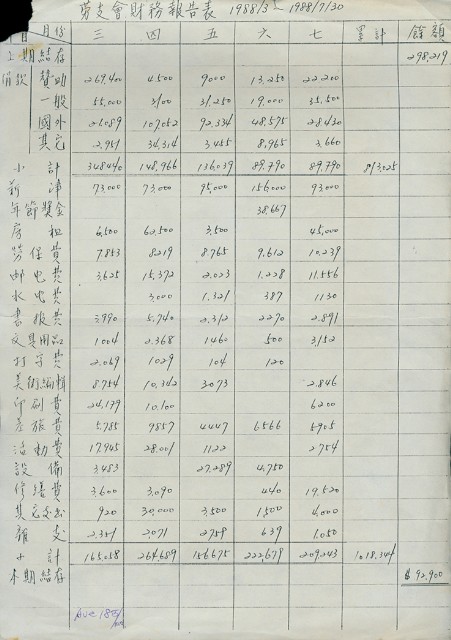 勞支會財務報告表 1988/3~1988/7/30
月份 三 四 五 六 七 累計 餘額
上期結存 298,219
捐款 贊助 269,400 4,500 9,000 13,250 22,200
一般 55,000 31,250 19,000 35,500
國外 107,052 92,334 48,575 28,430
其它 34,314 3,455 8,965 3,660
小計 348,440 148,966 136,039 89,790 89,790 813,025
薪津 73,000 73,000 95,000 156,000 93,000
年節獎金 38,667
房租 6,500 60,500 3,500 45,000
勞保費 7,853 8,219 8,765 9,612 10,239
邮电費 3,625 15,372 2,023 1,228 11,556
水电費 3,000 1,321 387 1,130
書報費 3,990 5,740 2,312 2,270 2,891
文具用品 1,004 2,368 1,460 500 3,152
打字費 2,069 1,029 104 120
美術編輯 8,754 10,342 3,073 2,846
印刷費 24,179 10,100 6,200
差旅費 5,785 9,857 4,447 6,566 5,905
活動費 17,945 28,001 1,122 2,754
設備 3,483 27,289 4,750
修繕費 3,600 3,090 440 19,520
其它支出 920 30,000 3,500 1,500 4,000
雜支 2,351 2,071 2,759 639 1,050
小計 165,058 264,689 156,675 222,679 209,243 1,018,344
本期結存 $92,900